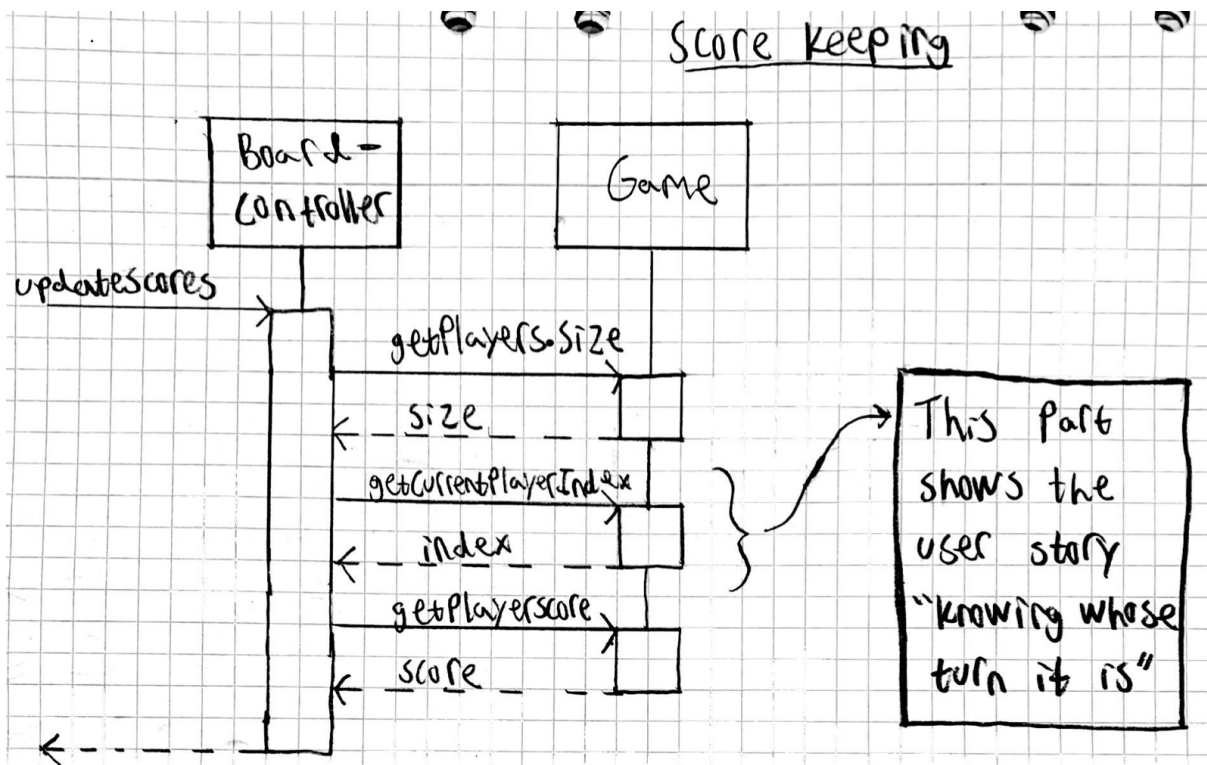 Score keeping
Board-
controller
Game
updatescores
getPlayers.size
size
getCurrentPlayerIndex
index
getPlayerscore
score
This Part
shows the
user story
"knowing whose
turn it is"